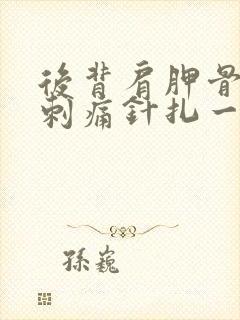 後背肩胛骨
刺痛針扎一
孫巍